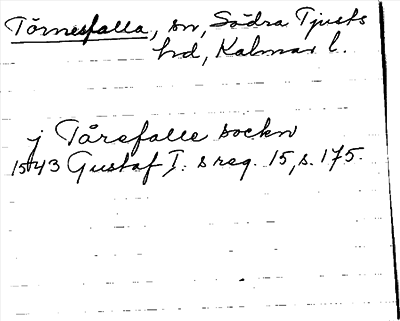 Törnesfalla, sn, Södra Tjusts
hd, Kalmar l.
j Tåresfalle sockn
1543 Gustaf I:s reg. 15, s. 175.